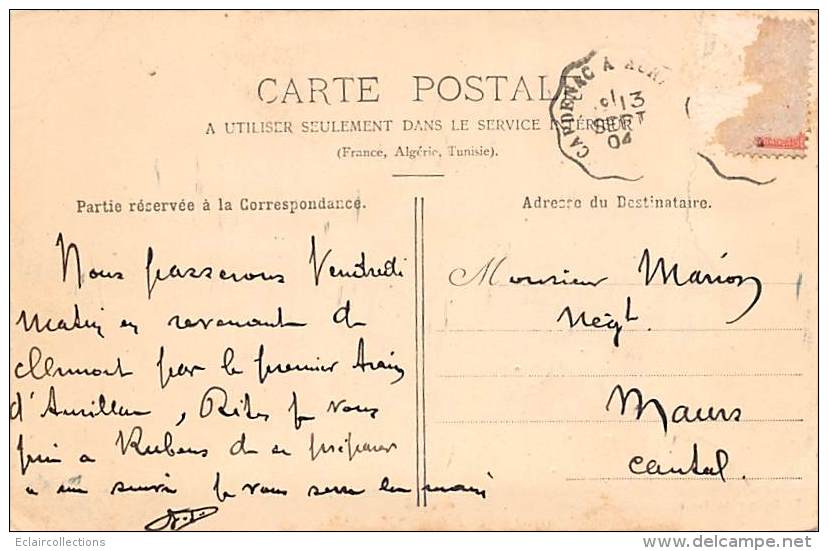 CARTE POSTALE
A UTILISER SEULEMENT DANS LE SERVICE INTÉRIEUR
(France, Algérie, Tunisie).
CAPDENAC A
13
SEPT
04
Partie réservée à la Correspondance.
Nous passerons Vendredi
matin en revenant de
clermont par le premier train
d'Aurillac,
je vous
a Rubens de en préparer
a je vous serre la main
Adresse du Destinataire.
Monsieur Marion
Négt.
Maurs
Cantal.
Eclaircollections
delcampe.net